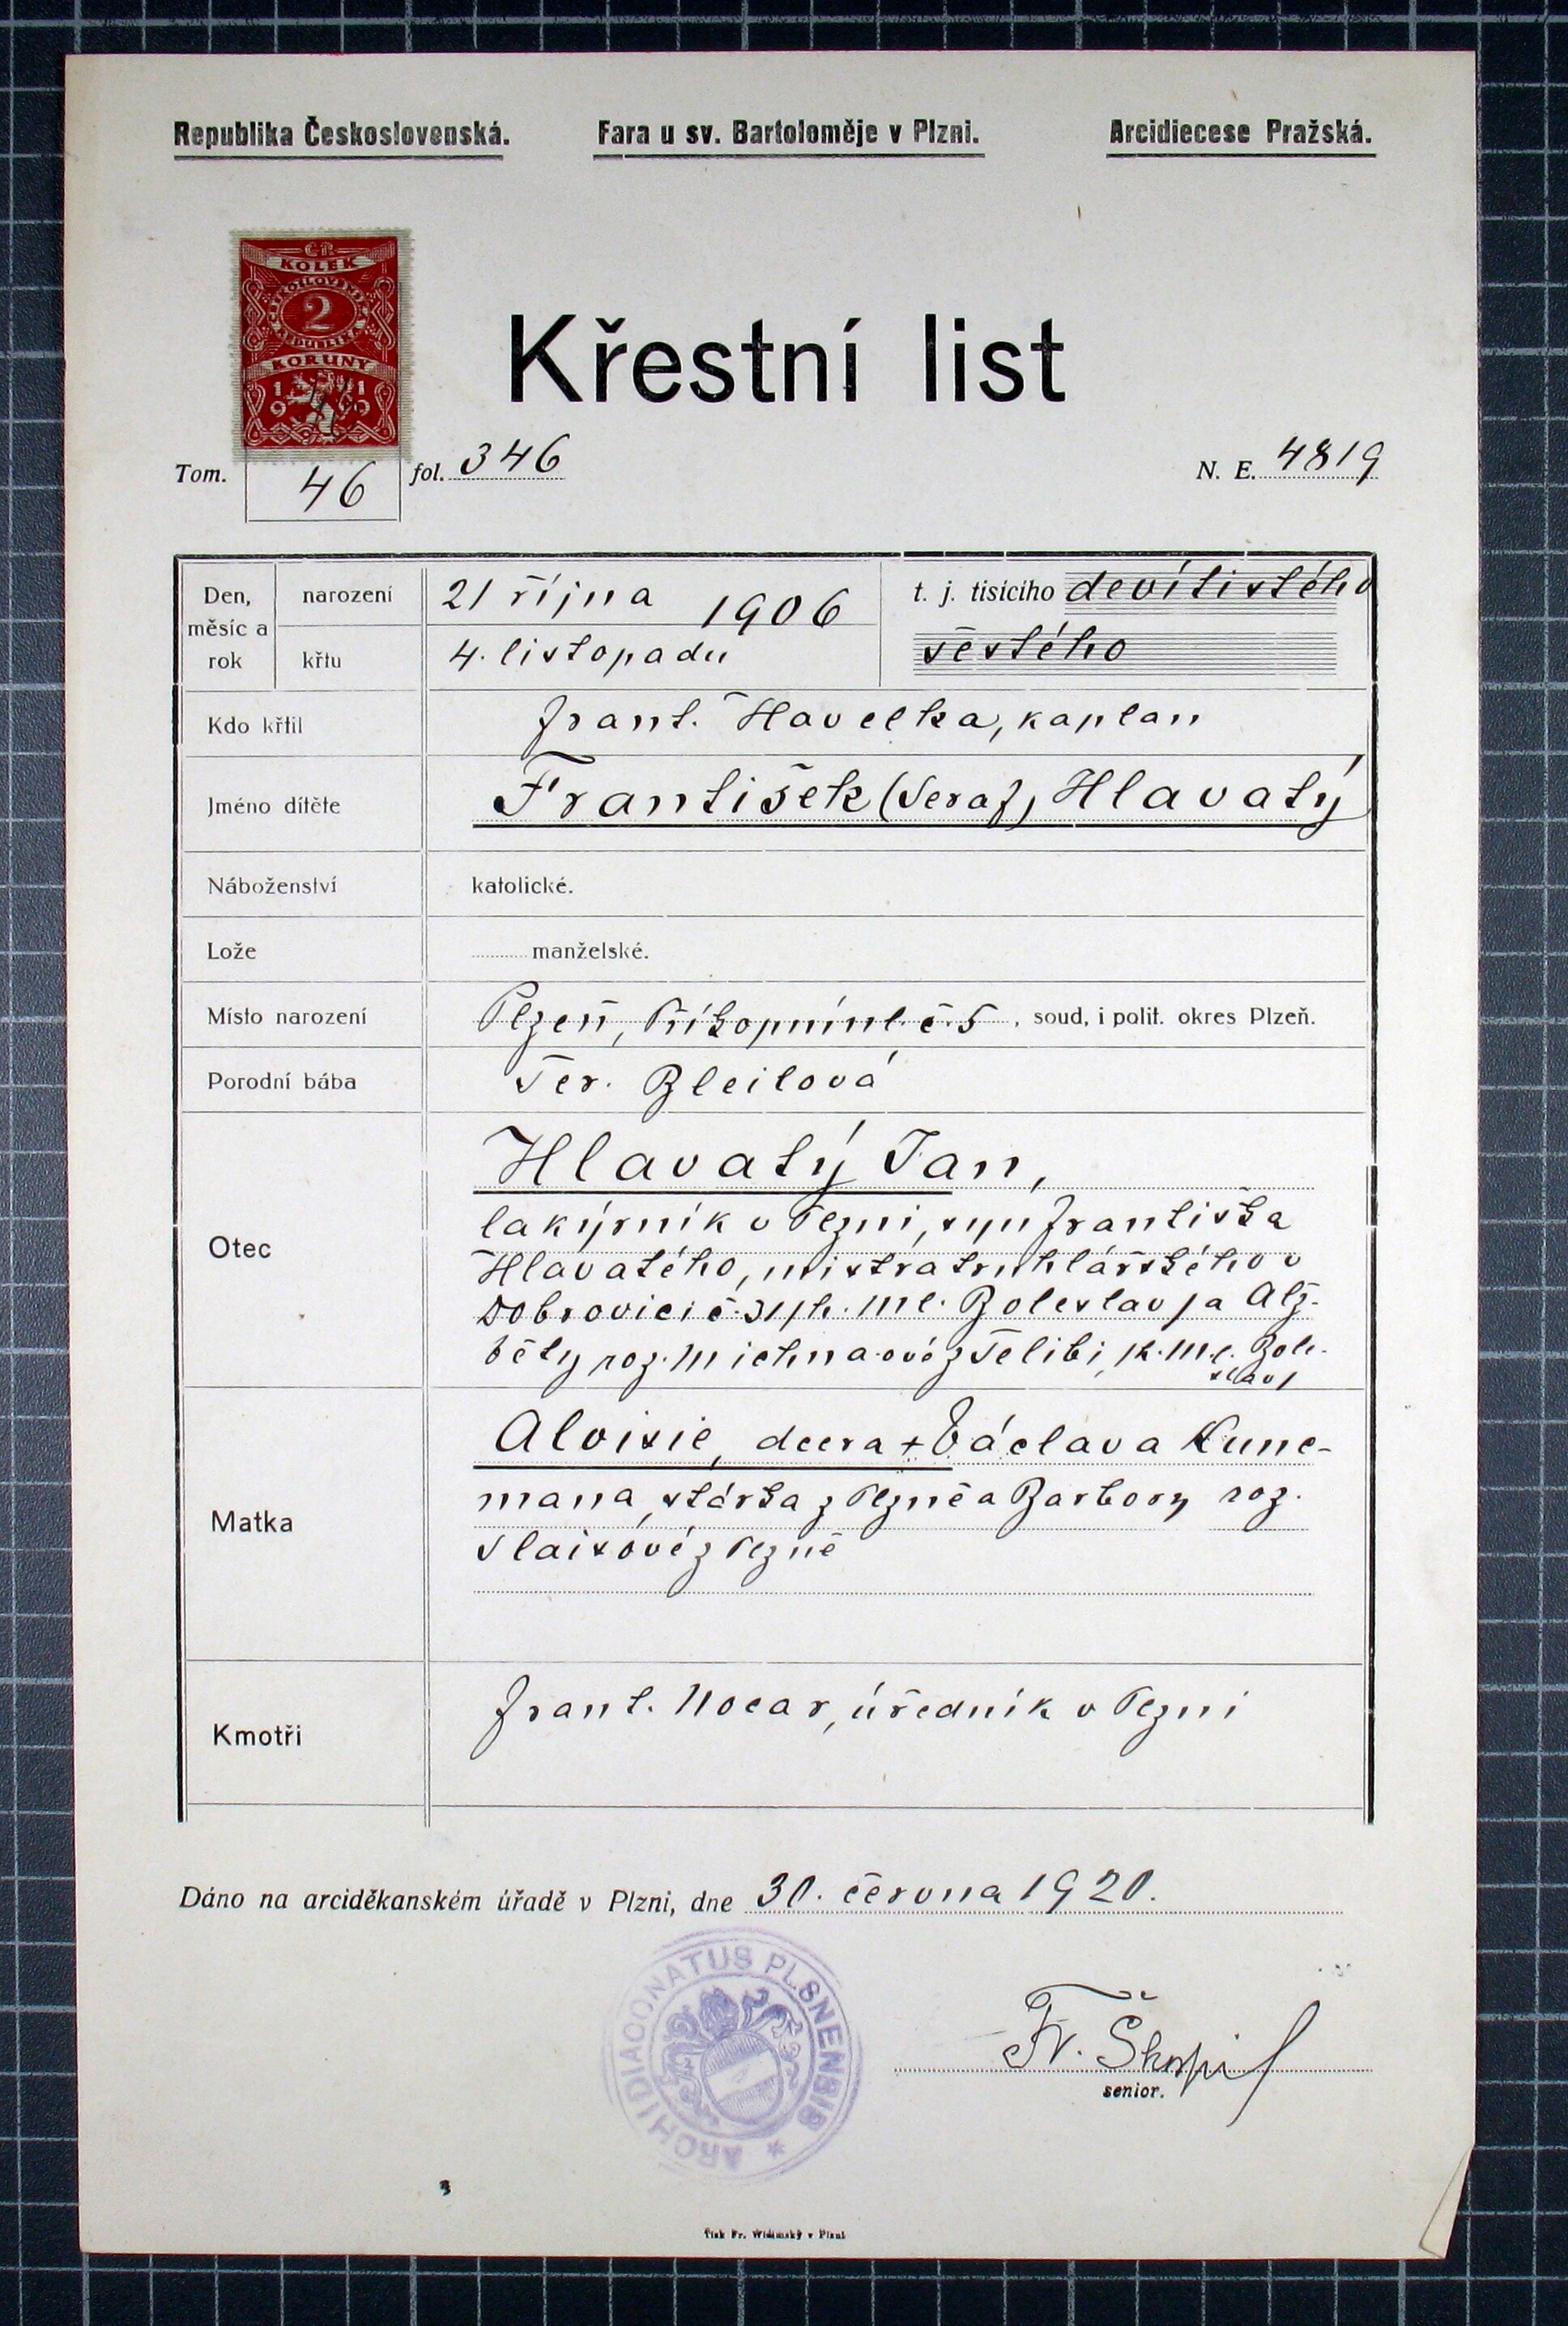 Republika Československá. Fara u sv. Bartoloměje v Plzni. Arcidiecese Pražská.
ČR.
KOLEK
2
KORUNY
1919
Křestní list
Tom. 46 fol. 346 N. E. 4819
Den, měsíc a rok narození 21 října 1906 t. j. tisícího devítistého
křtu 4. listopadu šestého
Kdo křtil Frant. Havelka, kaplan
Jméno dítěte František (Seraf) Hlavatý
Náboženství katolické.
Lože manželské.
Místo narození Plzeň, Příkopní ul. č. 5, soud. i polit. okres Plzeň.
Porodní bába Ter. Bleilová
Otec Hlavatý Jan,
lakýrník v Plzni, syn Františka
Hlavatého, mistra truhlářského v
Dobrovici č. 31, h. Ml. Boleslav, a Alž-
běty roz. Michna-ové z Telibi, k. Ml. Bole-
slav,
Matka Aloisie, dcera + Václava Kunc-
mana, stárka z Plzně a Barbory roz.
Slaisové z Plzně
Kmotři Frant. Nocar, úředník v Plzni
Dáno na arciděkanském úřadě v Plzni, dne 30. června 1920.
ARCHIDIACONATUS PLSNENSIS
Fr. Škopil
senior.
Tisk Fr. Widimský v Plzni